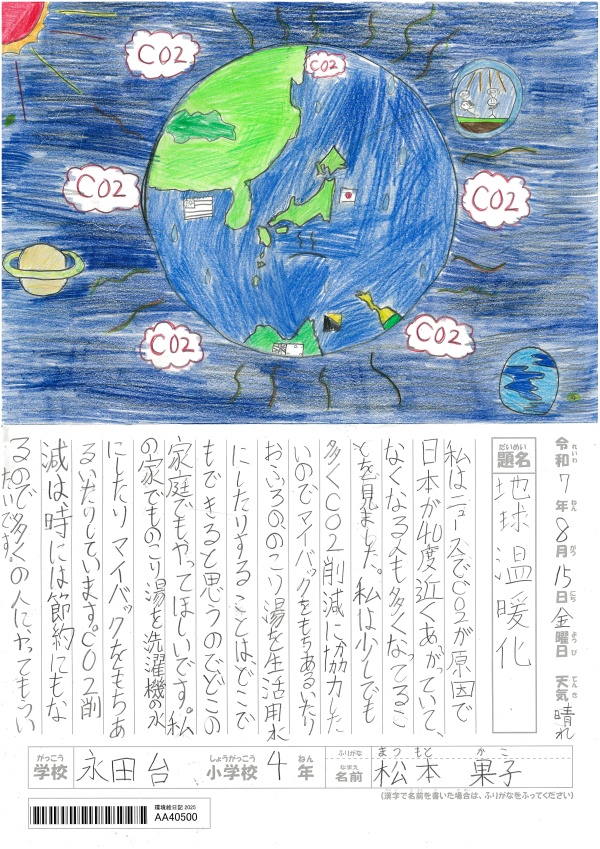 CO2
CO2
CO2
CO2
CO2
CO2
令和7年8月15日金曜日 天気 晴れ
れいわ ねん がつ にち ようび てんき
だいめい
題名
地球温暖化
私はニュースでCO2が原因で
日本が40度近くあがっていて、
なくなる人も多くなってるこ
とを見ました。私は少しでも
多くCO2削減に協力した
いのでマイバックをもちあるいたり
おふろのこり湯を生活用水
にしたりすることは、どこで
もできると思うのでどこの
家庭でもやってほしいです。私
の家でものこり湯を洗濯機の水
にしたりマイバックをもちあ
るいたりしています。CO2削
減は時には節約にもな
るので多くの人に、やってもらい
たいです。
がっこう
学校
永田台
しょうがっこう
小学校
4
ねん
年
ふりがな
まつ もと か こ
なまえ
名前
松本 果子
(漢字で名前を書いた場合は、ふりがなをふってください)
環境絵日記 2025
AA40500